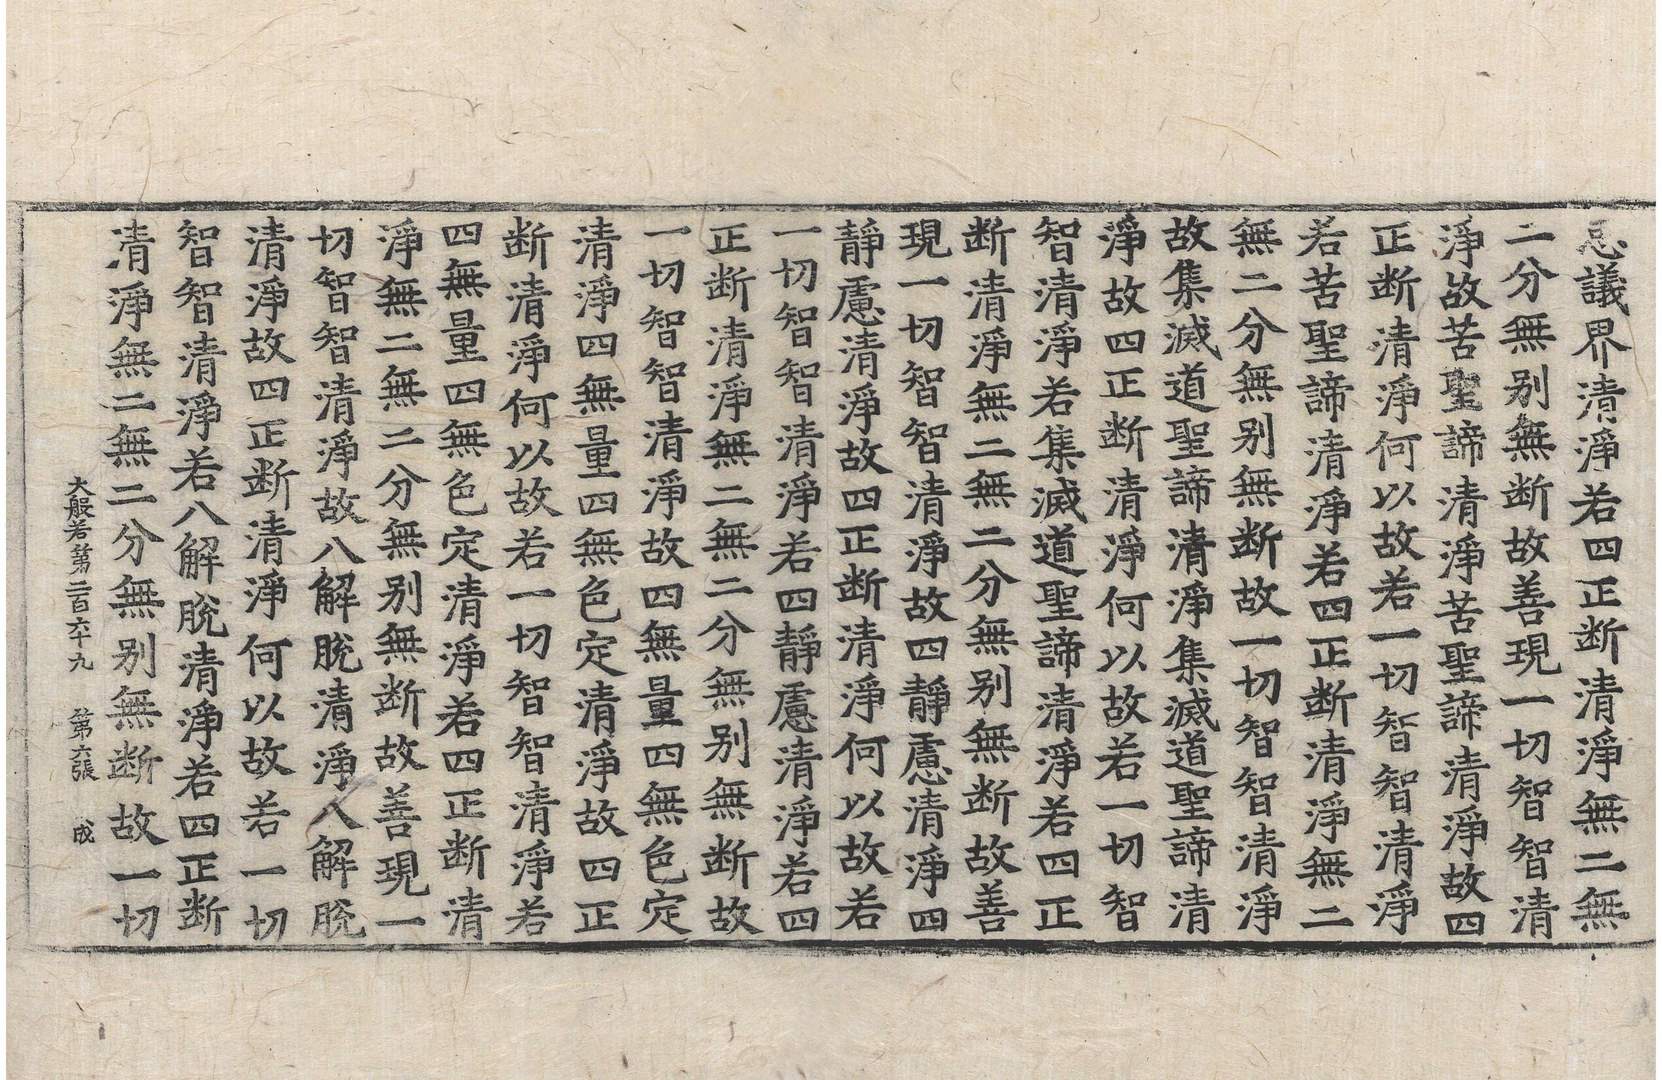 思議界清淨若四正断清淨無二無
二分無别無断故善現一切智智清
淨故苦聖諦清淨苦聖諦清淨故四
正断清淨何以故若一切智智清淨
若苦聖諦清淨若四正断清淨無二
無二分無别無断故一切智智清淨
故集滅道聖諦清淨集滅道聖諦清
淨故四正断清淨何以故若一切智
智清淨若集滅道聖諦清淨若四正
断清淨無二無二分無别無断故善
現一切智智清淨故四靜慮清淨四
靜慮清淨故四正断清淨何以故若
一切智智清淨若四靜慮清淨若四
正断清淨無二無二分無别無断故
一切智智清淨故四無量四無色定
清淨四無量四無色定清淨故四正
断清淨何以故若一切智智清淨若
四無量四無色定清淨若四正断清
淨無二無二分無别無断故善現一
切智智清淨故八解脫清淨八解脫
清淨故四正断清淨何以故若一切
智智清淨若八解脫清淨若四正断
清淨無二無二分無别無断故一切
大般若第二百六十九 第六張 成